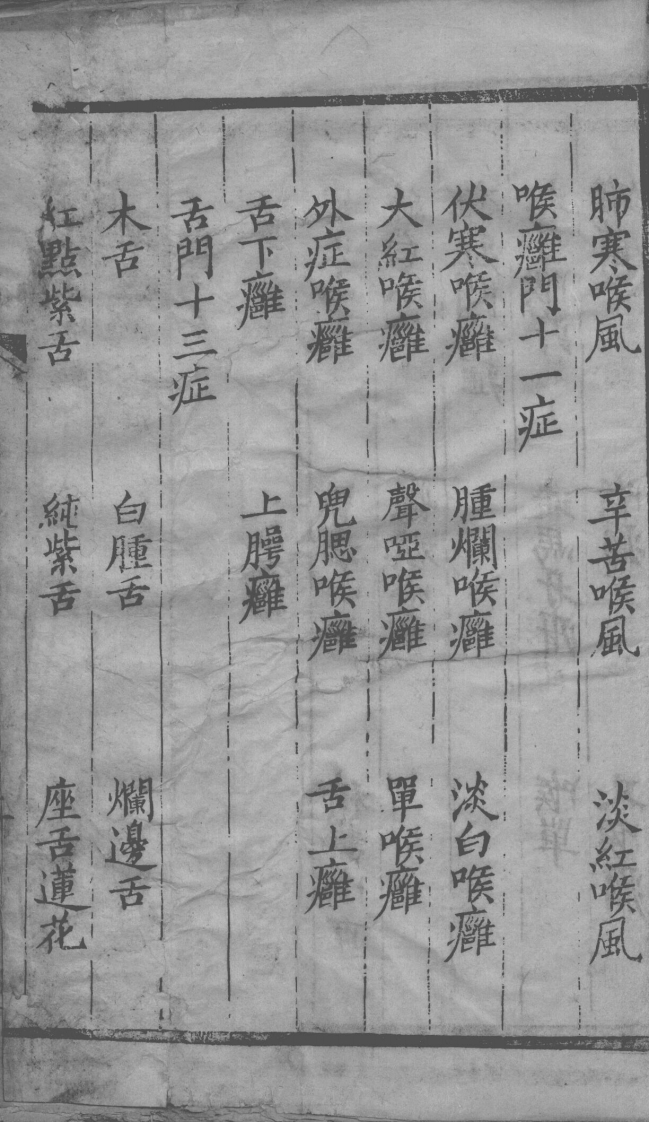 肺寒喉風　辛苦喉風　淡紅喉風
喉癰門十一症
伏寒喉癰　腫爛喉癰　淡白喉癰
大紅喉癰　聲啞喉癰　單喉癰
外症喉癰　兜腮喉癰　舌上癰
舌下癰　上腭癰
舌門十三症
木舌　白腫舌　爛邊舌
紅點紫舌　純紫舌　座舌蓮花